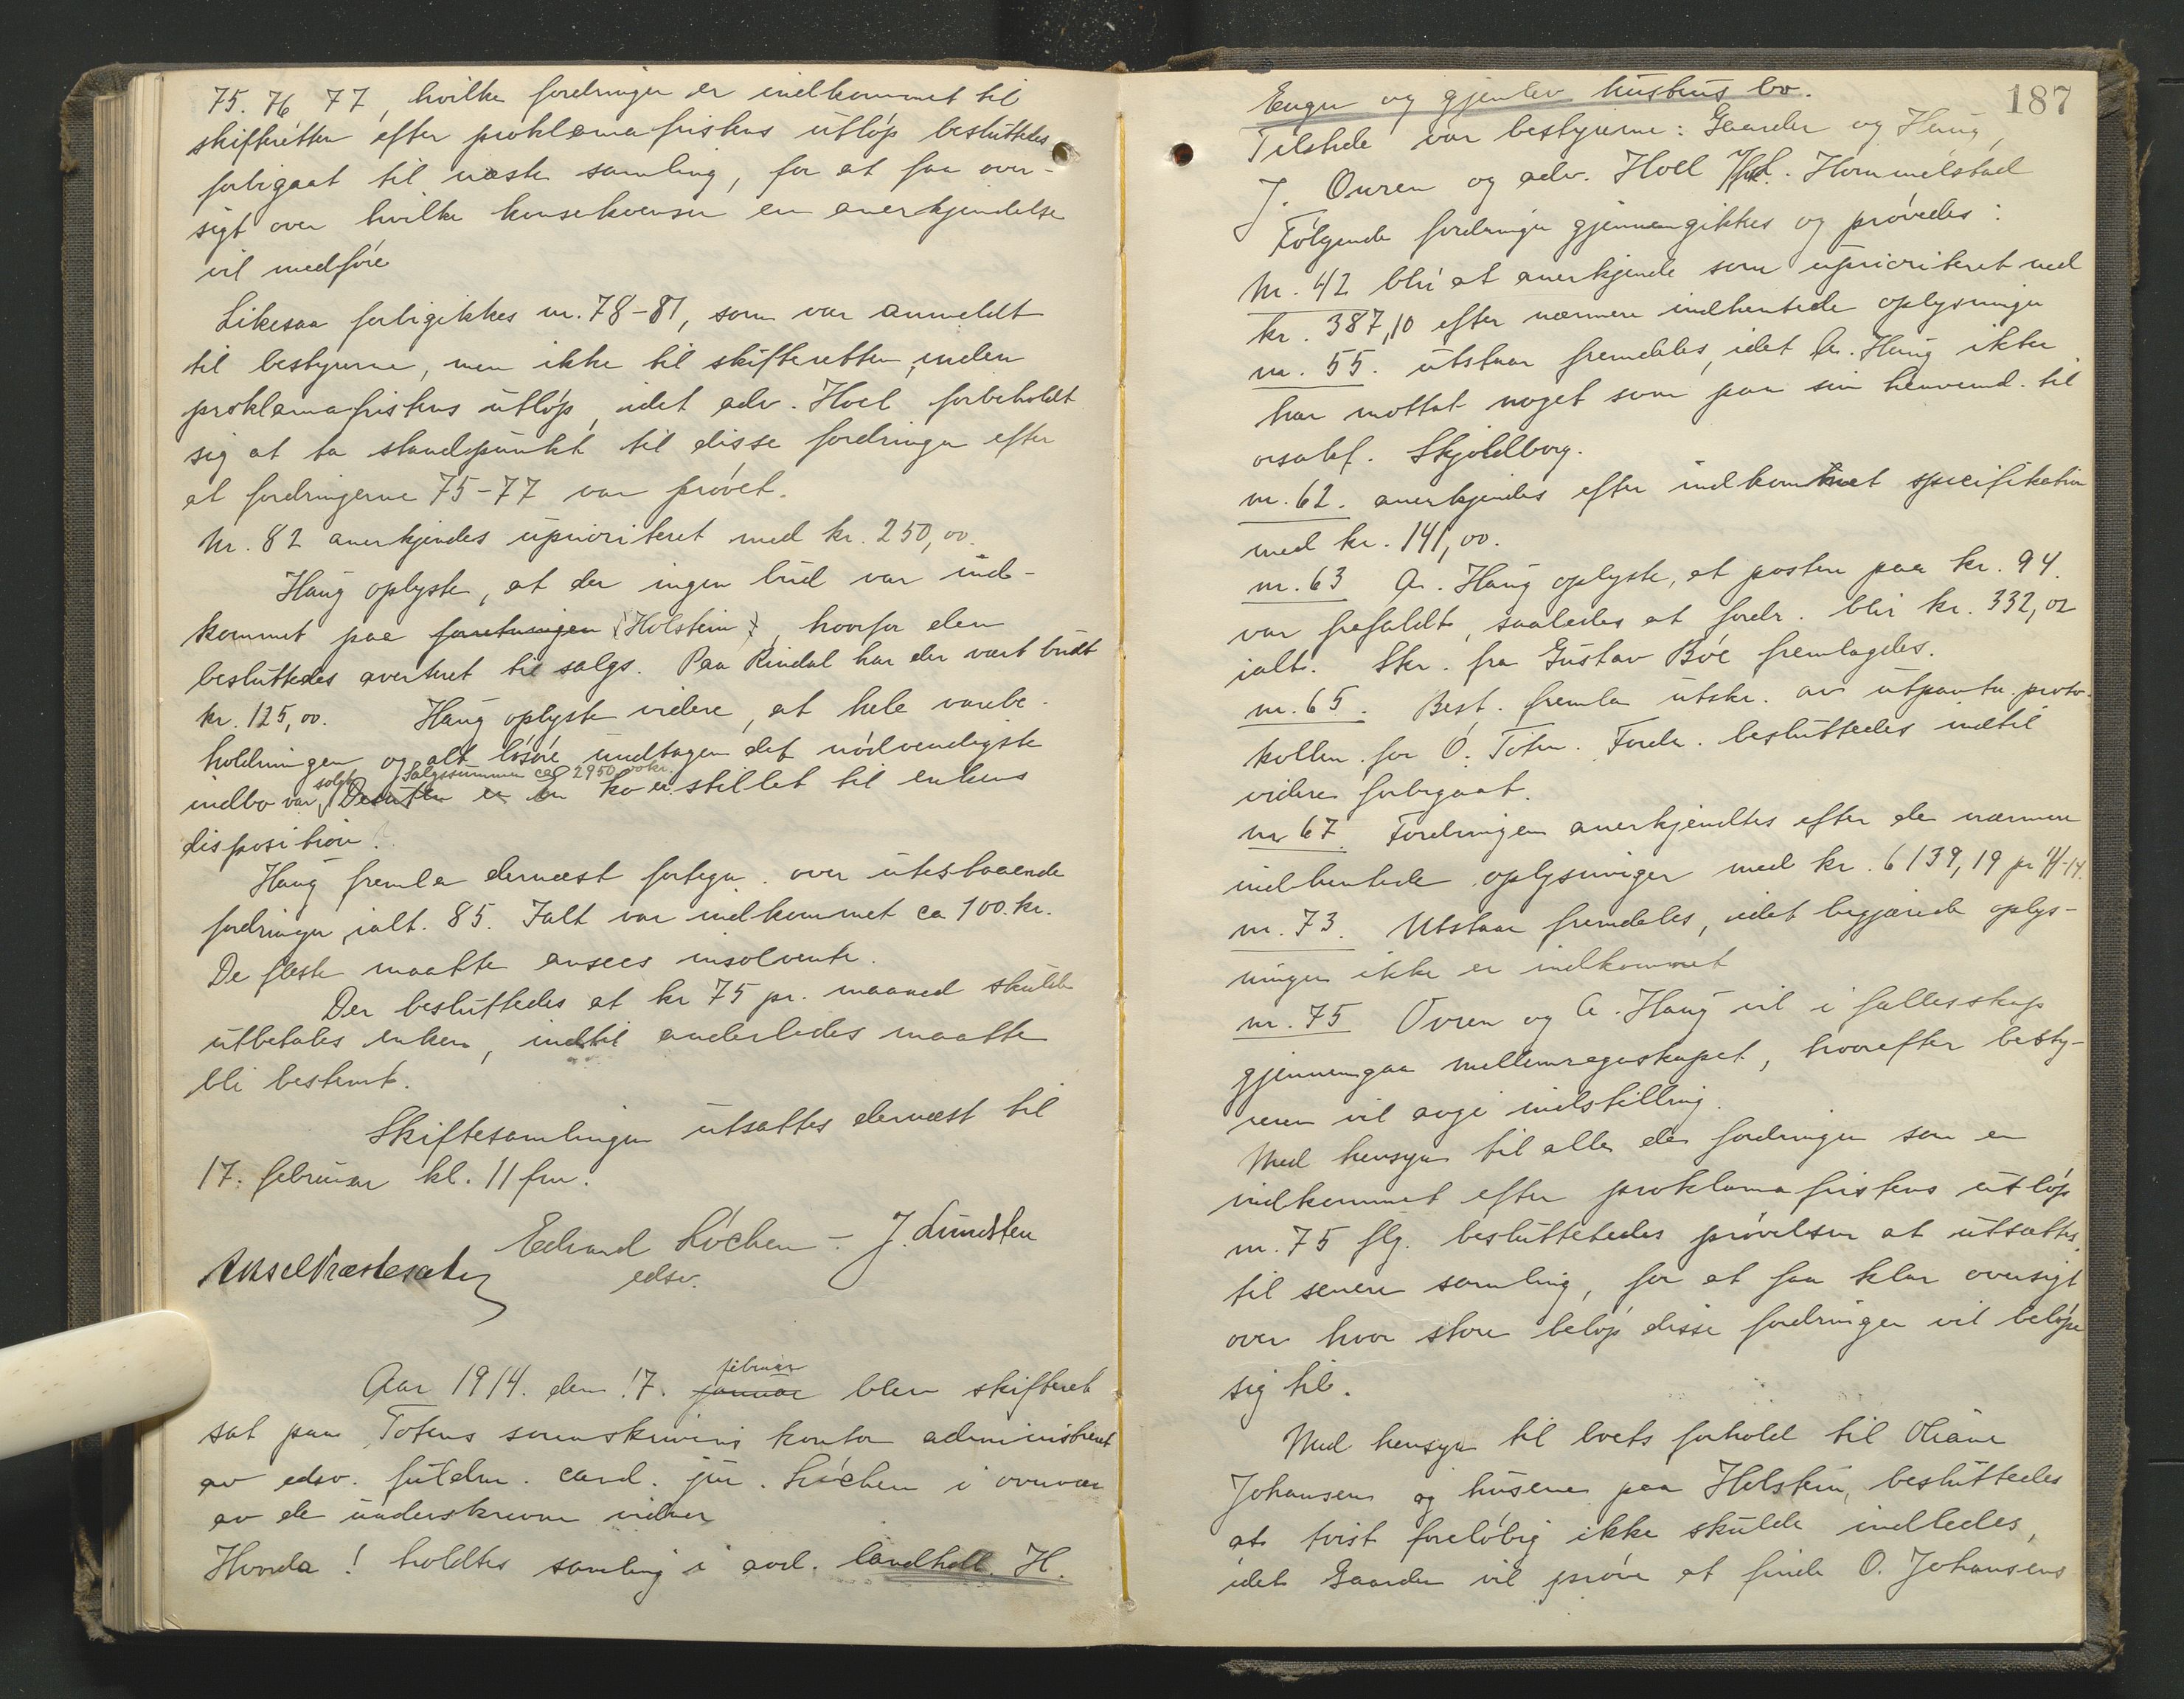 75. 76 77, hvilke fordringer er indkommet til
skifteretten efter proklama fristens utløp besluttedes
forbigaat til næste samling, for at faa over-
sigt over hvilke konsekvenser en anerkjendelse
vil medføre
Likesaa forbigikkes nr. 78-81, som var anmeldt
til bestyrerne, men ikke til skifteretten, inden
proklamafristens utløp, idet adv. Hoel forbeholdt
sig at ta standpunkt til disse fordringer efter
at fordringerne 75-77 var prøvet.
Nr. 82 anerkjendes uprioritert med kr. 250,00.
Haug oplyste, at der ingen bud var ind-
kommet paa forretningen (Holstein), hvorfor den
besluttedes avertert til salgs. Paa Rindal har der vært budt
kr. 125,00. Haug oplyste videre, at hele varebe-
holdningen og alt løsøre undtagen det nødvendigste
solgt Salgssummen ca 2950,00 kr.
indbo var Desuten er en ko er stillet til enkens
disposition.
Haug fremla dernæst fortegn. over utestaaende
fordringer, ialt. 85. Ialt var indkommet ca 100. kr.
De fleste maatte ansees insolvente.
Der besluttedes at kr 75 pr. maaned skulde
utbetales enken, indtil anderledes maatte
bli bestemt.
Skiftesamlingen utsattes dernæst til
17. februar kl. 11 fm.
Edvard Løchen - J. Lundsten
Aksel Præstesæter edsv.
februar
Aar 1914. den 17. januar blev skifteret
sat paa Totens sorenskriveri kontor administrert
av edsv. fuldm. cand. jur. Løchen i overvær
av de underskrevne vidner
Hvorda! holdtes samling i avd. landhdl. H.
187
Enger og gjenlev hustrus bo.
Tilstede var bestyrerne: Gaarder og Haug,
J. Ouren og adv. Hoel Hommelstad
Følgende fordringer gjennemgikkes og prøvedes:
Nr. 42 blir at anerkjende som uprioriteret med
kr. 387,10 efter nærmere indhentede oplysninger
nr. 55. utstaar fremdeles, idet A. Haug ikke
har mottat noget som paa sin henvend. til
Skjoldborg.
nr. 62. anerkjendes efter indkommet specifikation
med kr. 141,00.
nr. 63 A. Haug oplyste, at posten paa kr. 94.
var frafaldt, saaledes at fordr. blir kr. 332,02
ialt. Skr. fra Gustav Bøe fremlagdes.
nr. 65. Best. fremla utskr. av utpantn. proto-
kollen for Ø. Toten. Fordr. besluttedes indtil
videre forbigaat.
nr 67. Fordringen anerkjendtes efter de nærmere
indhentede oplysninger med kr. 6139,19 pr 1/1-14.
nr. 73. Utstaar fremdeles, idet begjærede oplys-
ninger ikke er indkommet
nr. 75 Ouren og A. Haug vil i fællesskap
gjennemgaa mellemregnskapet, hvorefter besty-
reren vil avgi indstilling.
Med hensyn til alle de fordringer som er
indkommet efter proklama fristens utløp
nr. 75 flg. besluttetedes prøvelsen at utsættes
til senere samling, for at faa klar oversigt
over hvor store beløp disse fordringer vil beløpe
sig til.
Med hensyn til boets forhold til Oliane
Johansen og husene paa Holstein, besluttedes
at tvist foreløbig ikke skulde indledes,
idet Gaarder vil prøve at finde O. Johansens